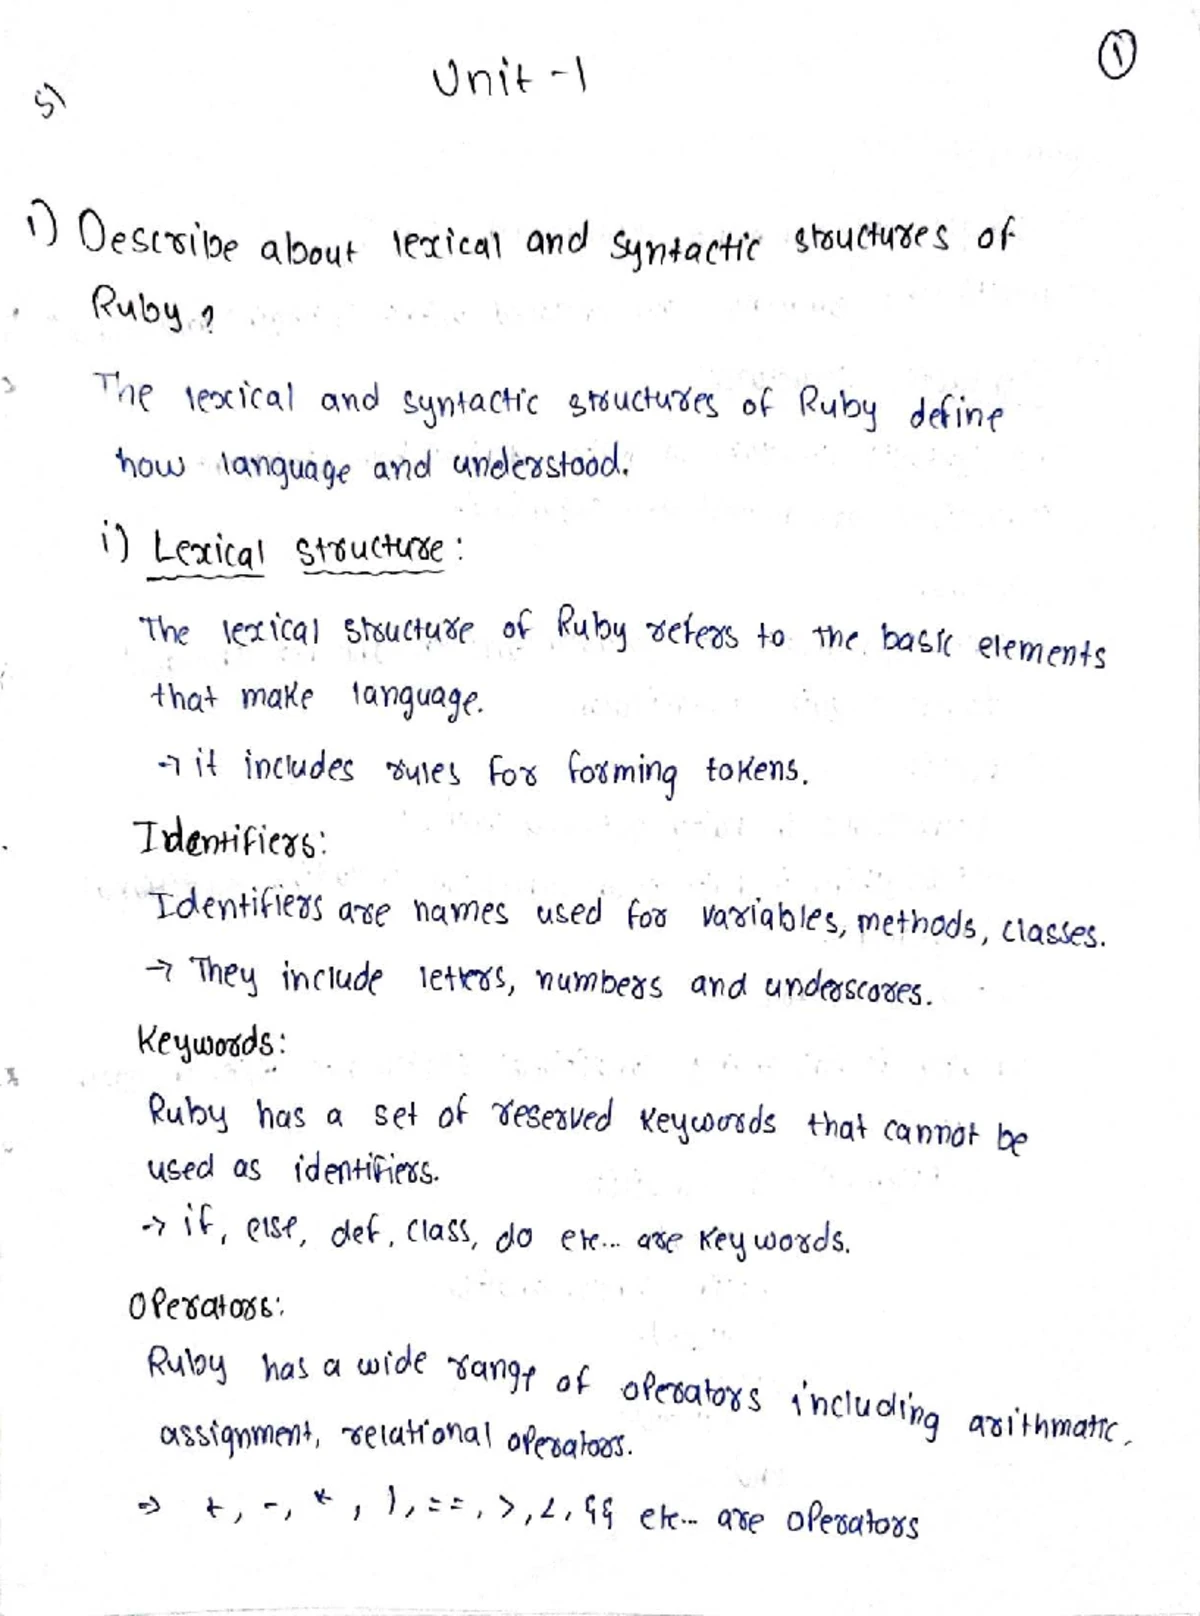 Unit -1
①
5)
1) Describe about lexical and syntactic structures of
Ruby?
The lexical and syntactic structures of Ruby define
how language and understood.
i) Lexical structure:
The lexical structure of Ruby refers to the basic elements
that make language.
→ it includes rules for forming tokens.
Identifiers:
Identifiers are names used for variables, methods, classes.
→ They include letters, numbers and underscores.
Keywords:
Ruby has a set of reserved keywords that cannot be
used as identifiers.
→ if, else, def, class, do etc... are keywords.
Operators:
Ruby has a wide range of operators including arithmatic,
assignment, relational operators.
⇒ +, -, *, ), ==, >, <, && etc... are operators